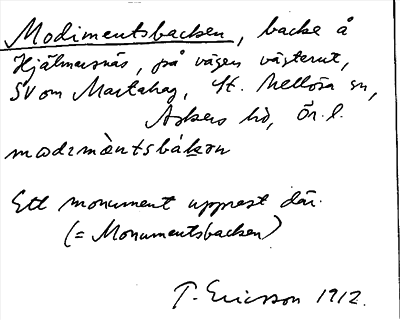 Modimentsbacken, backe å
Hjälmarsnäs, på vägen västerut,
SV om Martahag, St. Mellösa sn,
Askers hd, Ör. l.
modɪmàntsbákən
Ett monument upprest där.
(= Monumentsbacken)
T. Ericsson 1912.